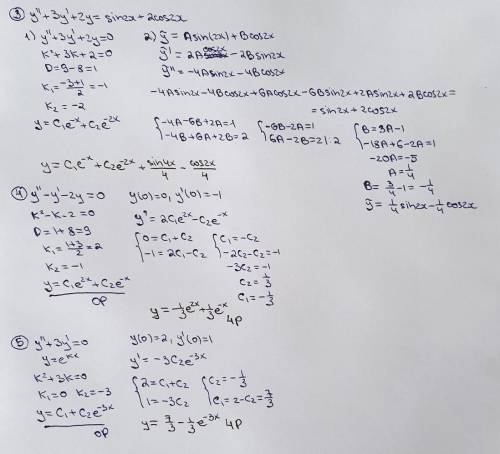 ③ y''+3y'+2y= sin2x+2cos2x
1) y''+3y'+2y=0
k²+3k+2=0
D=9-8=1
k₁=(-3+1)/2=-1
k₂=-2
y=C₁e^-x+C₂e^-2x
2) ỹ=Asin(2x)+Bcos2x
ỹ'=2Acos2x-2Bsin2x
ỹ''=-4Asin2x-4Bcos2x
-4Asin2x-4Bcos2x+6Acos2x-6Bsin2x+2Asin2x+2Bcos2x=
=sin2x+2cos2x
{-4A-6B+2A=1
-4B+6A+2B=2
{-6B-2A=1
6A-2B=2|:2
{B=3A-1
-18A+6-2A=1
-20A=-5
A=1/4
B=3/4-1=-1/4
ỹ=1/4 sin2x-1/4 cos2x
y=C₁e^-x+C₂e^-2x+sin4x/4-cos2x/4
④ y''-y'-2y=0
k²-k-2=0
D=1+8=9
k₁=(1+3)/2=2
k₂=-1
y=C₁e^2x+C₂e^-x
ОР
y(0)=0, y'(0)=-1
y'=2C₁e^2x-C₂e^-x
{0=C₁+C₂
-1=2C₁-C₂
{C₁=-C₂
-2C₂-C₂=-1
-3C₂=-1
C₂=1/3
C₁=-1/3
y=-1/3 e^2x+1/3 e^-x
ЧР
⑤ y''+3y'=0
y=e^kx
k²+3k=0
k₁=0 k₂=-3
y=C₁+C₂e^-3x
ОР
y(0)=2, y'(0)=1
y'=-3C₂e^-3x
{2=C₁+C₂
1=-3C₂
{C₂=-1/3
C₁=2-C₂=7/3
y=7/3-1/3 e^-3x ЧР